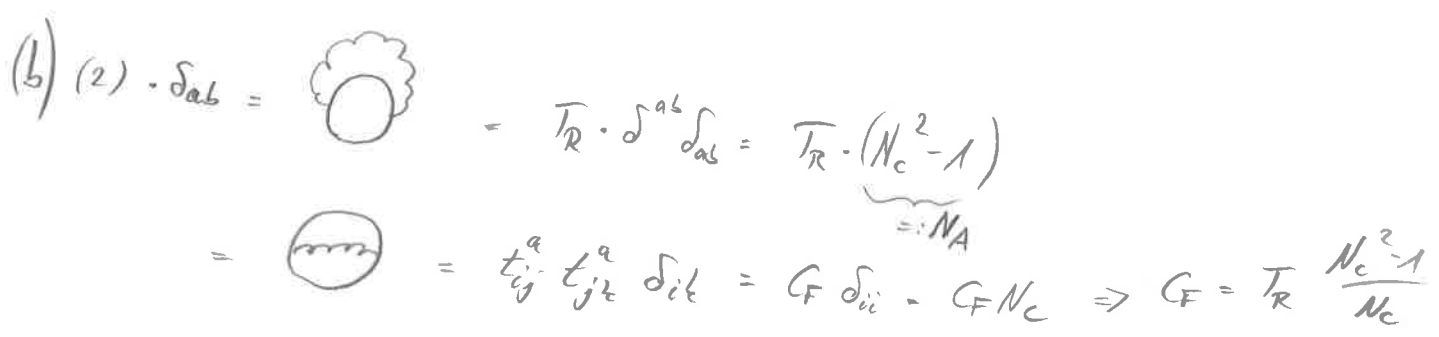 (b) (2) · δ_ab = = T_R · δ^ab δ_ab = T_R · (N_c^2 - 1)
=: N_A
= = t^a_ij t^a_jk δ_ik = C_F δ_ii = C_F N_c ⇒ C_F = T_R (N_c^2 - 1)/N_c